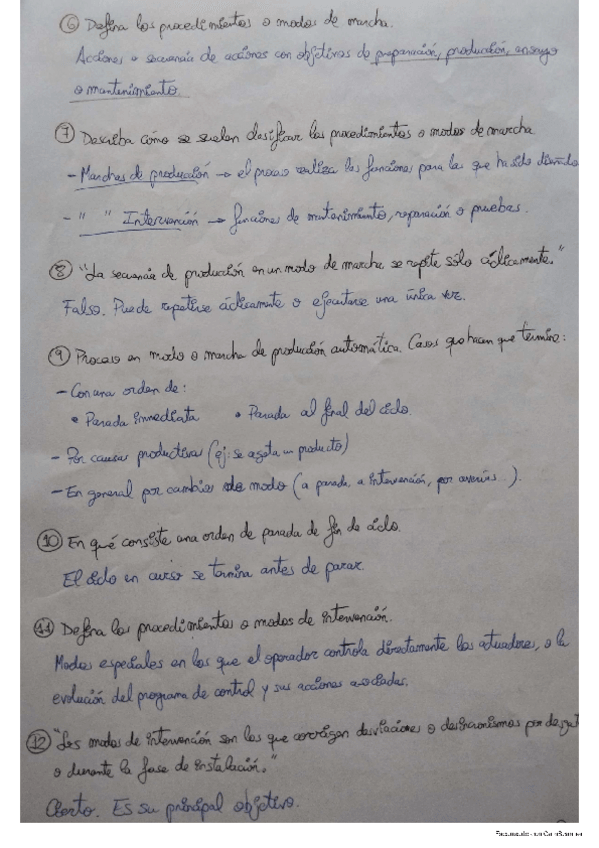 ⑥ Defina los procedimientos o modos de marcha.
Acciones o secuencia de acciones con objetivos de preparación, producción, ensayo
o mantenimiento.
⑦ Describa cómo se suelen clasificar los procedimientos o modos de marcha
- Marchas de producción → el proceso realiza las funciones para las que ha sido diseñado
- " " Intervención → funciones de mantenimiento, reparación o pruebas.
⑧ "La secuencia de producción en un modo de marcha se repite sólo cíclicamente."
Falso. Puede repetirse cíclicamente o ejecutarse una única vez.
⑨ Proceso en modo o marcha de producción automática. Casos que hacen que termine:
- Con una orden de:
• Parada inmediata • Parada al final del ciclo.
- Por causas productivas (ej: se agota un producto)
- En general por cambio de modo (a parada, a intervención, por averías...).
⑩ En qué consiste una orden de parada de fin de ciclo.
El ciclo en curso se termina antes de parar.
⑪ Defina los procedimientos o modos de intervención.
Modos especiales en los que el operador controla directamente los actuadores, o la
evolución del programa de control y sus acciones asociadas.
⑫ "Los modos de intervención son los que corrigen desviaciones o desincronismos por
o durante la fase de instalación."
Cierto. Es su principal objetivo.